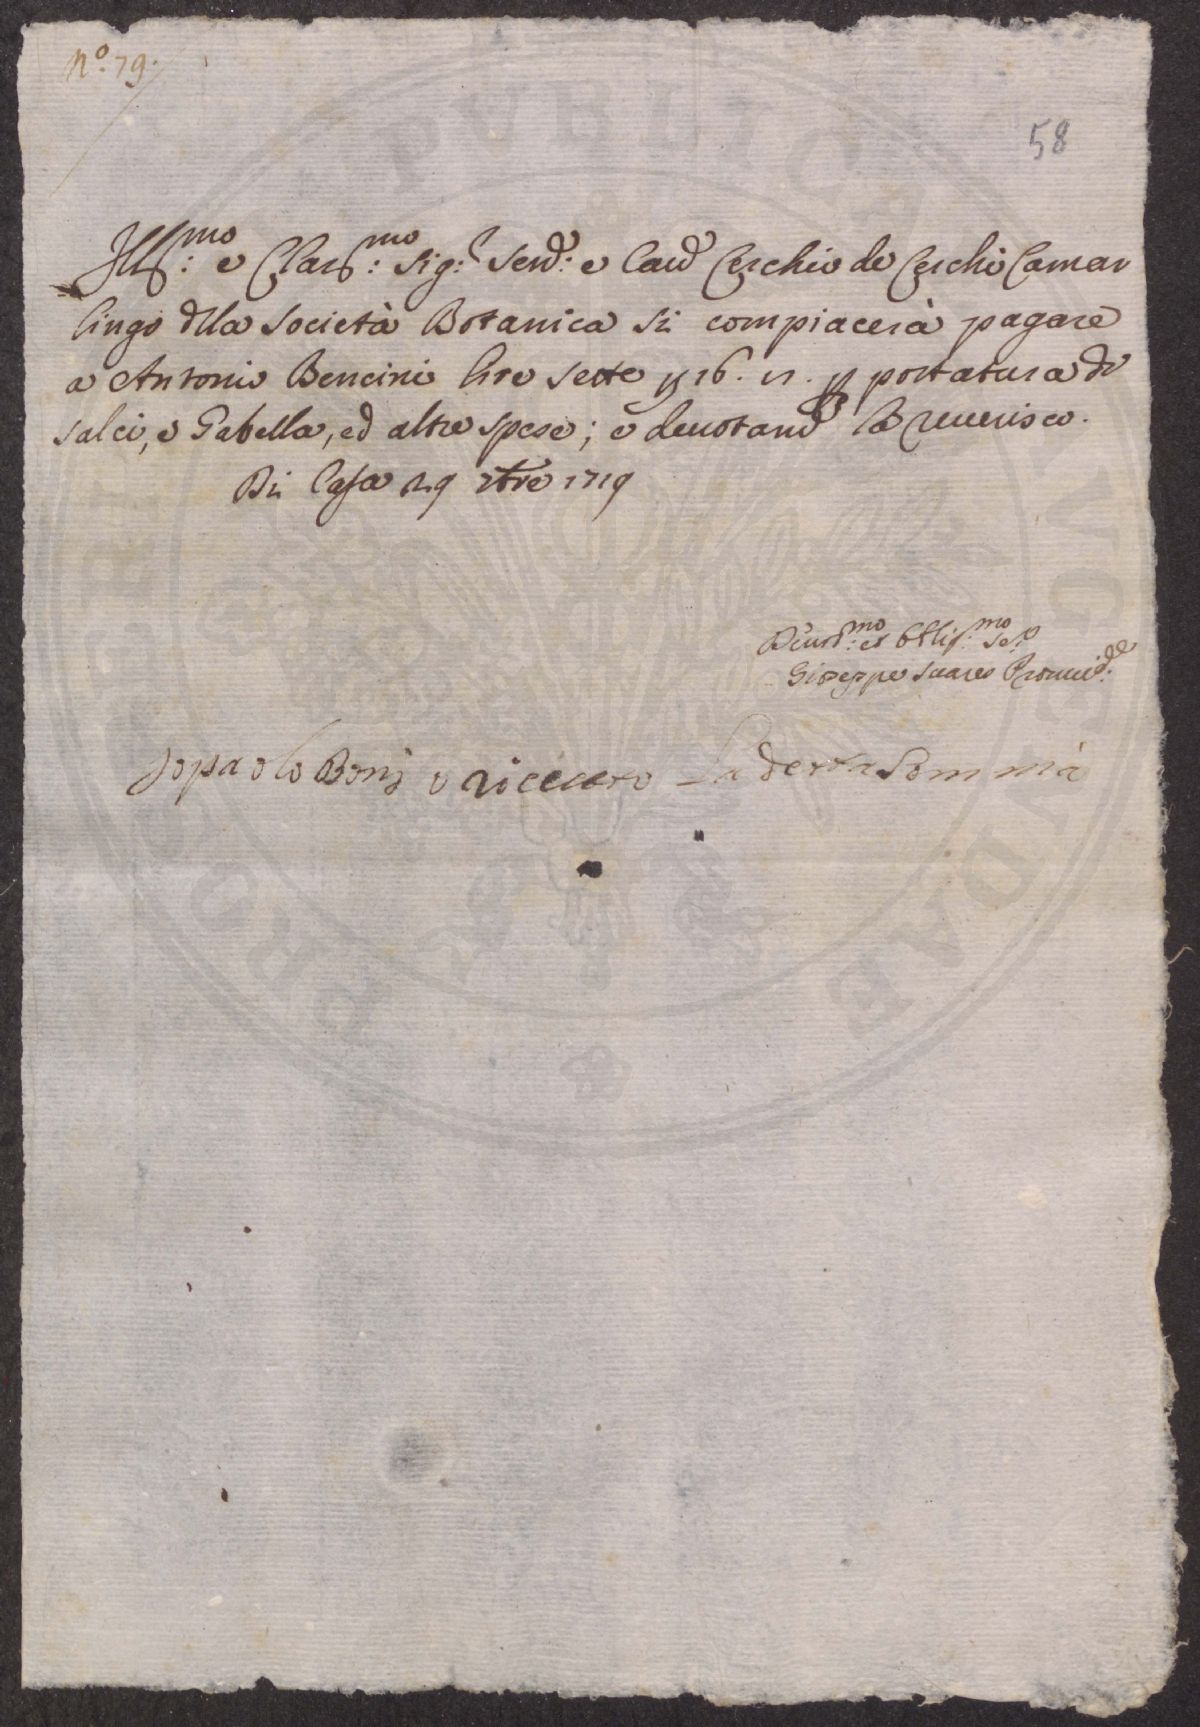 Nº: 79.
58
Ill:mo e Clar:mo Sig:r Send: e Cavd Cerchio de Cerchi Camar
lingo dlla Società Botanica si compiacerà pagare
a Antonio Bencini lire sette 16. portatura di
salci, e Gabella, ed altre spese; e devotamd la reverisco.
Di Casa 29 7bre 1719
Devot:mo et Obblig:mo Se:r
Gioseppe Suares Provvid:re
Io paolo Boni o riceuto La detta Somma